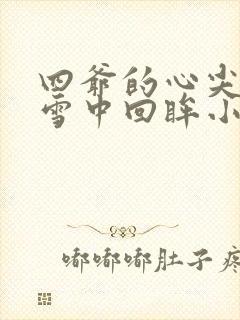 四爷的心尖
雪中回眸小
嘟嘟嘟肚子疼